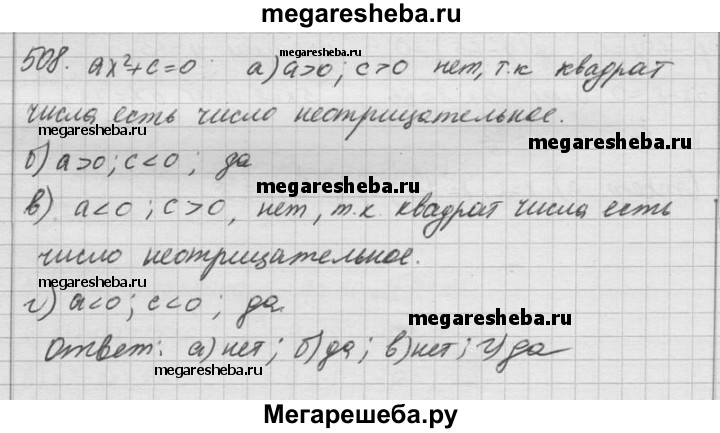 megaresheba.ru
508. ax²+c=0 а) a>0; c>0 нет, т.к квадрат
megaresheba.ru
числа есть число неотрицательное.
megaresheba.ru
megaresheba.ru
б) a>0; c<0; да
megaresheba.ru
в) a<0; c>0, нет, т.к. квадрат числа есть
число неотрицательное.
megaresheba.ru
г) a<0; c<0; да.
megaresheba.ru
Ответ: а) нет; б) да; в) нет; г) да
megaresheba.ru
Мегарешеба.ру